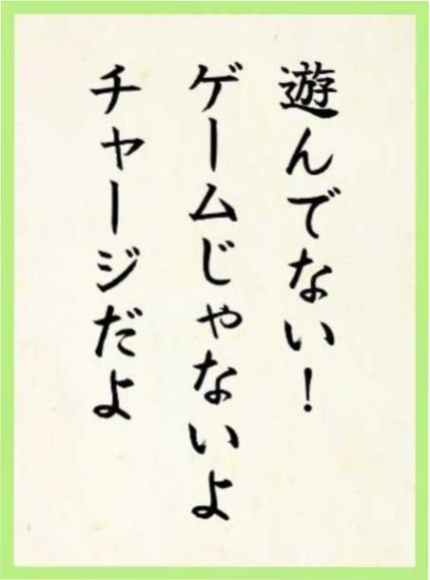 遊んでない！
ゲームじゃないよ
チャージだよ